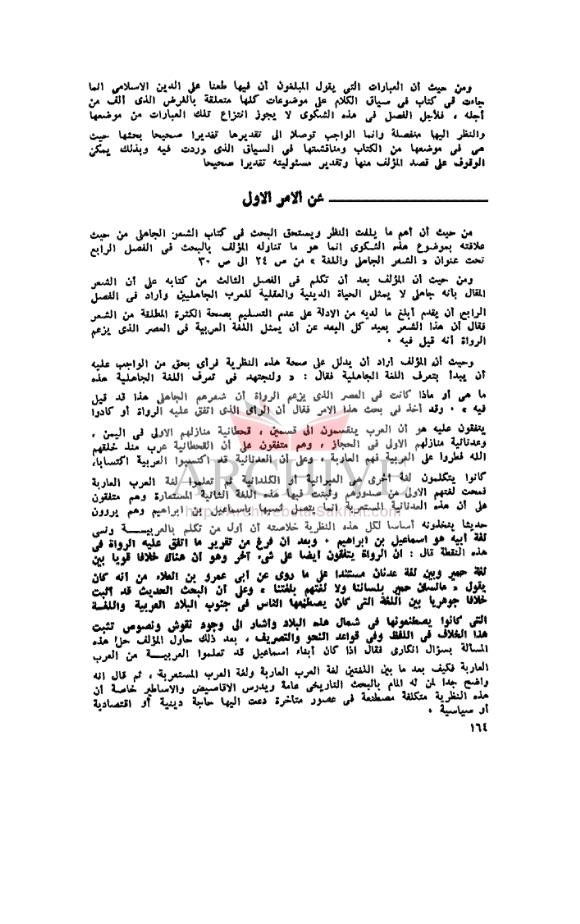 ومن حيث أن العبارات التى يقول المبلغون أن فيها طعنا على الدين الاسلامى انما
جاءت فى كتاب فى سياق الكلام على موضوعات كلها متعلقة بالغرض الذى ألف من
أجله ، فلأجل الفصل فى هذه الشكوى لا يجوز انتزاع تلك العبارات من موضعها
والنظر اليها منفصلة وانما الواجب توصلا الى تقديرها تقديرا صحيحا بحثها حيث
هى فى موضعها من الكتاب ومناقشتها فى السياق الذى وردت فيه وبذلك يمكن
الوقوف على قصد المؤلف منها وتقدير مسئوليته تقديرا صحيحا
عن الامر الاول
من حيث أن أهم ما يلفت النظر ويستحق البحث فى كتاب الشعر الجاهلى من حيث
علاقته بموضوع هذه الشكوى انما هو ما تناوله المؤلف بالبحث فى الفصل الرابع
تحت عنوان « الشعر الجاهلى واللغة » من ص ٢٤ الى ص ٣٠
ومن حيث أن المؤلف بعد أن تكلم فى الفصل الثالث من كتابه على أن الشعر
المقال بأنه جاهلى لا يمثل الحياة الدينية والعقلية للعرب الجاهليين وأراد فى الفصل
الرابع أن يقدم أبلغ ما لديه من الادلة على عدم التسليم بصحة الكثرة المطلقة من الشعر
فقال أن هذا الشعر بعيد كل البعد عن أن يمثل اللغة العربية فى العصر الذى يزعم
الرواة أنه قيل فيه ٠
وحيث أن المؤلف أراد أن يدلل على صحة هذه النظرية فرأى بحق من الواجب عليه
أن يبدأ بتعرف اللغة الجاهلية فقال : « ولنجتهد فى تعرف اللغة الجاهلية هذه
ما هى أو ماذا كانت فى العصر الذى يزعم الرواة أن شعرهم الجاهلى هذا قد قيل
فيه » ٠ وقد أخذ فى بحث هذا الامر فقال أن الرأى الذى اتفق عليه الرواة أو كادوا
يتفقون عليه هو أن العرب ينقسمون الى قسمين ، قحطانية منازلهم الاولى فى اليمن ،
وعدنانية منازلهم الاولى فى الحجاز ، وهم متفقون على أن القحطانية عرب منذ خلقهم
الله فطروا على العربية فهم العاربة ، وعلى أن العدنانية قد اكتسبوا العربية اكتسابا،
كانوا يتكلمون لغة أخرى هى العبرانية أو الكلدانية ثم تعلموا لغة العرب العاربة
فمحت لغتهم الاولى من صدورهم وثبتت فيها هذه اللغة الثانية المستعارة وهم متفقون
على أن هذه العدنانية المستعربة انما يتصل نسبها باسماعيل بن ابراهيم وهم يروون
حديثا يتخذونه أساسا لكل هذه النظرية خلاصته أن أول من تكلم بالعربية ونسى
لغة أبيه هو اسماعيل بن ابراهيم ٠ وبعد أن فرغ من تقرير ما اتفق عليه الرواة فى
هذه النقطة قال : أن الرواة يتفقون أيضا على شىء آخر وهو أن هناك خلافا قويا بين
لغة حمير وبين لغة عدنان مستندا على ما روى عن أبى عمرو بن العلاء من أنه كان
يقول « مالسان حمير بلساننا ولا لغتهم بلغتنا » وعلى أن البحث الحديث قد أثبت
خلافا جوهريا بين اللغة التى كان يصطنعها الناس فى جنوب البلاد العربية واللغة
التى كانوا يصطنعونها فى شمال هذه البلاد وأشار الى وجود نقوش ونصوص تثبت
هذا الخلاف فى اللفظ وفى قواعد النحو والتصريف ، بعد ذلك حاول المؤلف حل هذه
المسألة بسؤال انكارى فقال اذا كان أبناء اسماعيل قد تعلموا العربية من العرب
العاربة فكيف بعد ما بين اللغتين لغة العرب العاربة ولغة العرب المستعربة ، ثم قال انه
واضح جدا لمن له المام بالبحث التاريخى عامة وبدرس الاقاصيص والاساطير خاصة أن
هذه النظرية متكلفة مصطنعة فى عصور متأخرة دعت اليها حاجة دينية أو اقتصادية
أو سياسية ٠
١٦٤
ARCHIVE